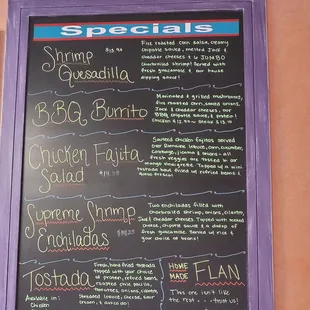 Specials
Shrimp
Quesadilla
Fire roasted corn salsa, creamy
chipotle sauce, melted Jack &
cheddar cheeses & 10 JUMBO
charbroiled shrimp! Served with
fresh guacamole & our house
dipping sauce!
BBQ Burrito
Marinated & grilled mushrooms,
fire roasted corn, onions,
Jack & cheddar cheese, our
BBQ chipotle sauce, & protein!
Chicken $12.50 Steak $13.50
Chicken Fajita
Salad
Sautéed chicken fajitas served
over Romaine lettuce, corn, cucumber,
cabbage, jicama & onions - all
fresh veggies are tossed in our
mango vinaigrette. Topped w/ a mini
tostada bowl filled w/ refried beans &
queso fresco!
Supreme Shrimp
Enchiladas
Two enchiladas filled with
charbroiled shrimp, onions, cilantro,
Jack & cheddar cheeses. Topped with
cheese, chipotle sauce & a dollop of
fresh guacamole. Served w/ rice &
your choice of beans!
Tostada
Available in:
Chicken
Fresh, hand fried tostadas
topped with your choice
of protein, refried beans,
roasted chile pasilla,
tomatoes, onions, cilantro,
shredded lettuce, cheese, sour
cream, & avocado!
HOME
MADE
FLAN
This one isn't like
the rest . . . trust us!